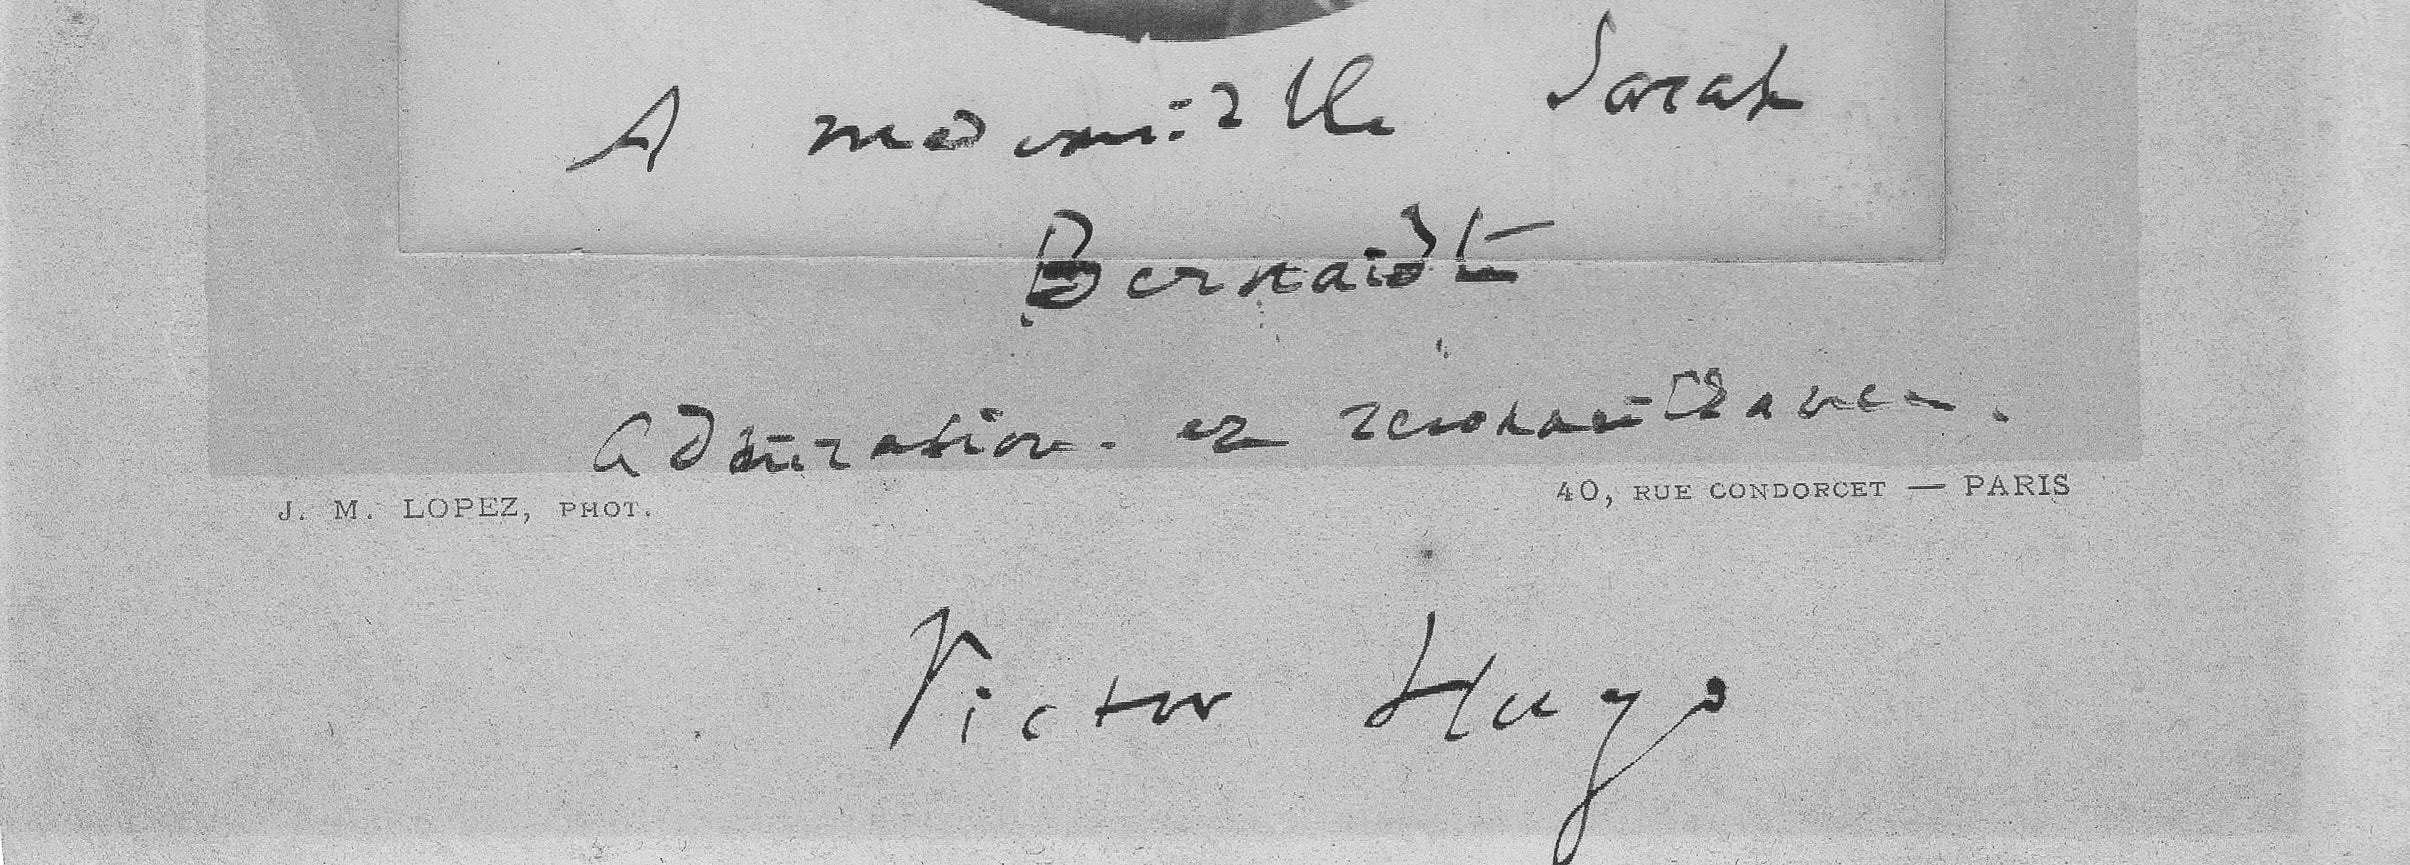 A mademoiselle Sarah
Bernardt
admiration et reconnaissance.
J. M. LOPEZ, PHOT.
40, RUE CONDORCET — PARIS
Victor Hugo